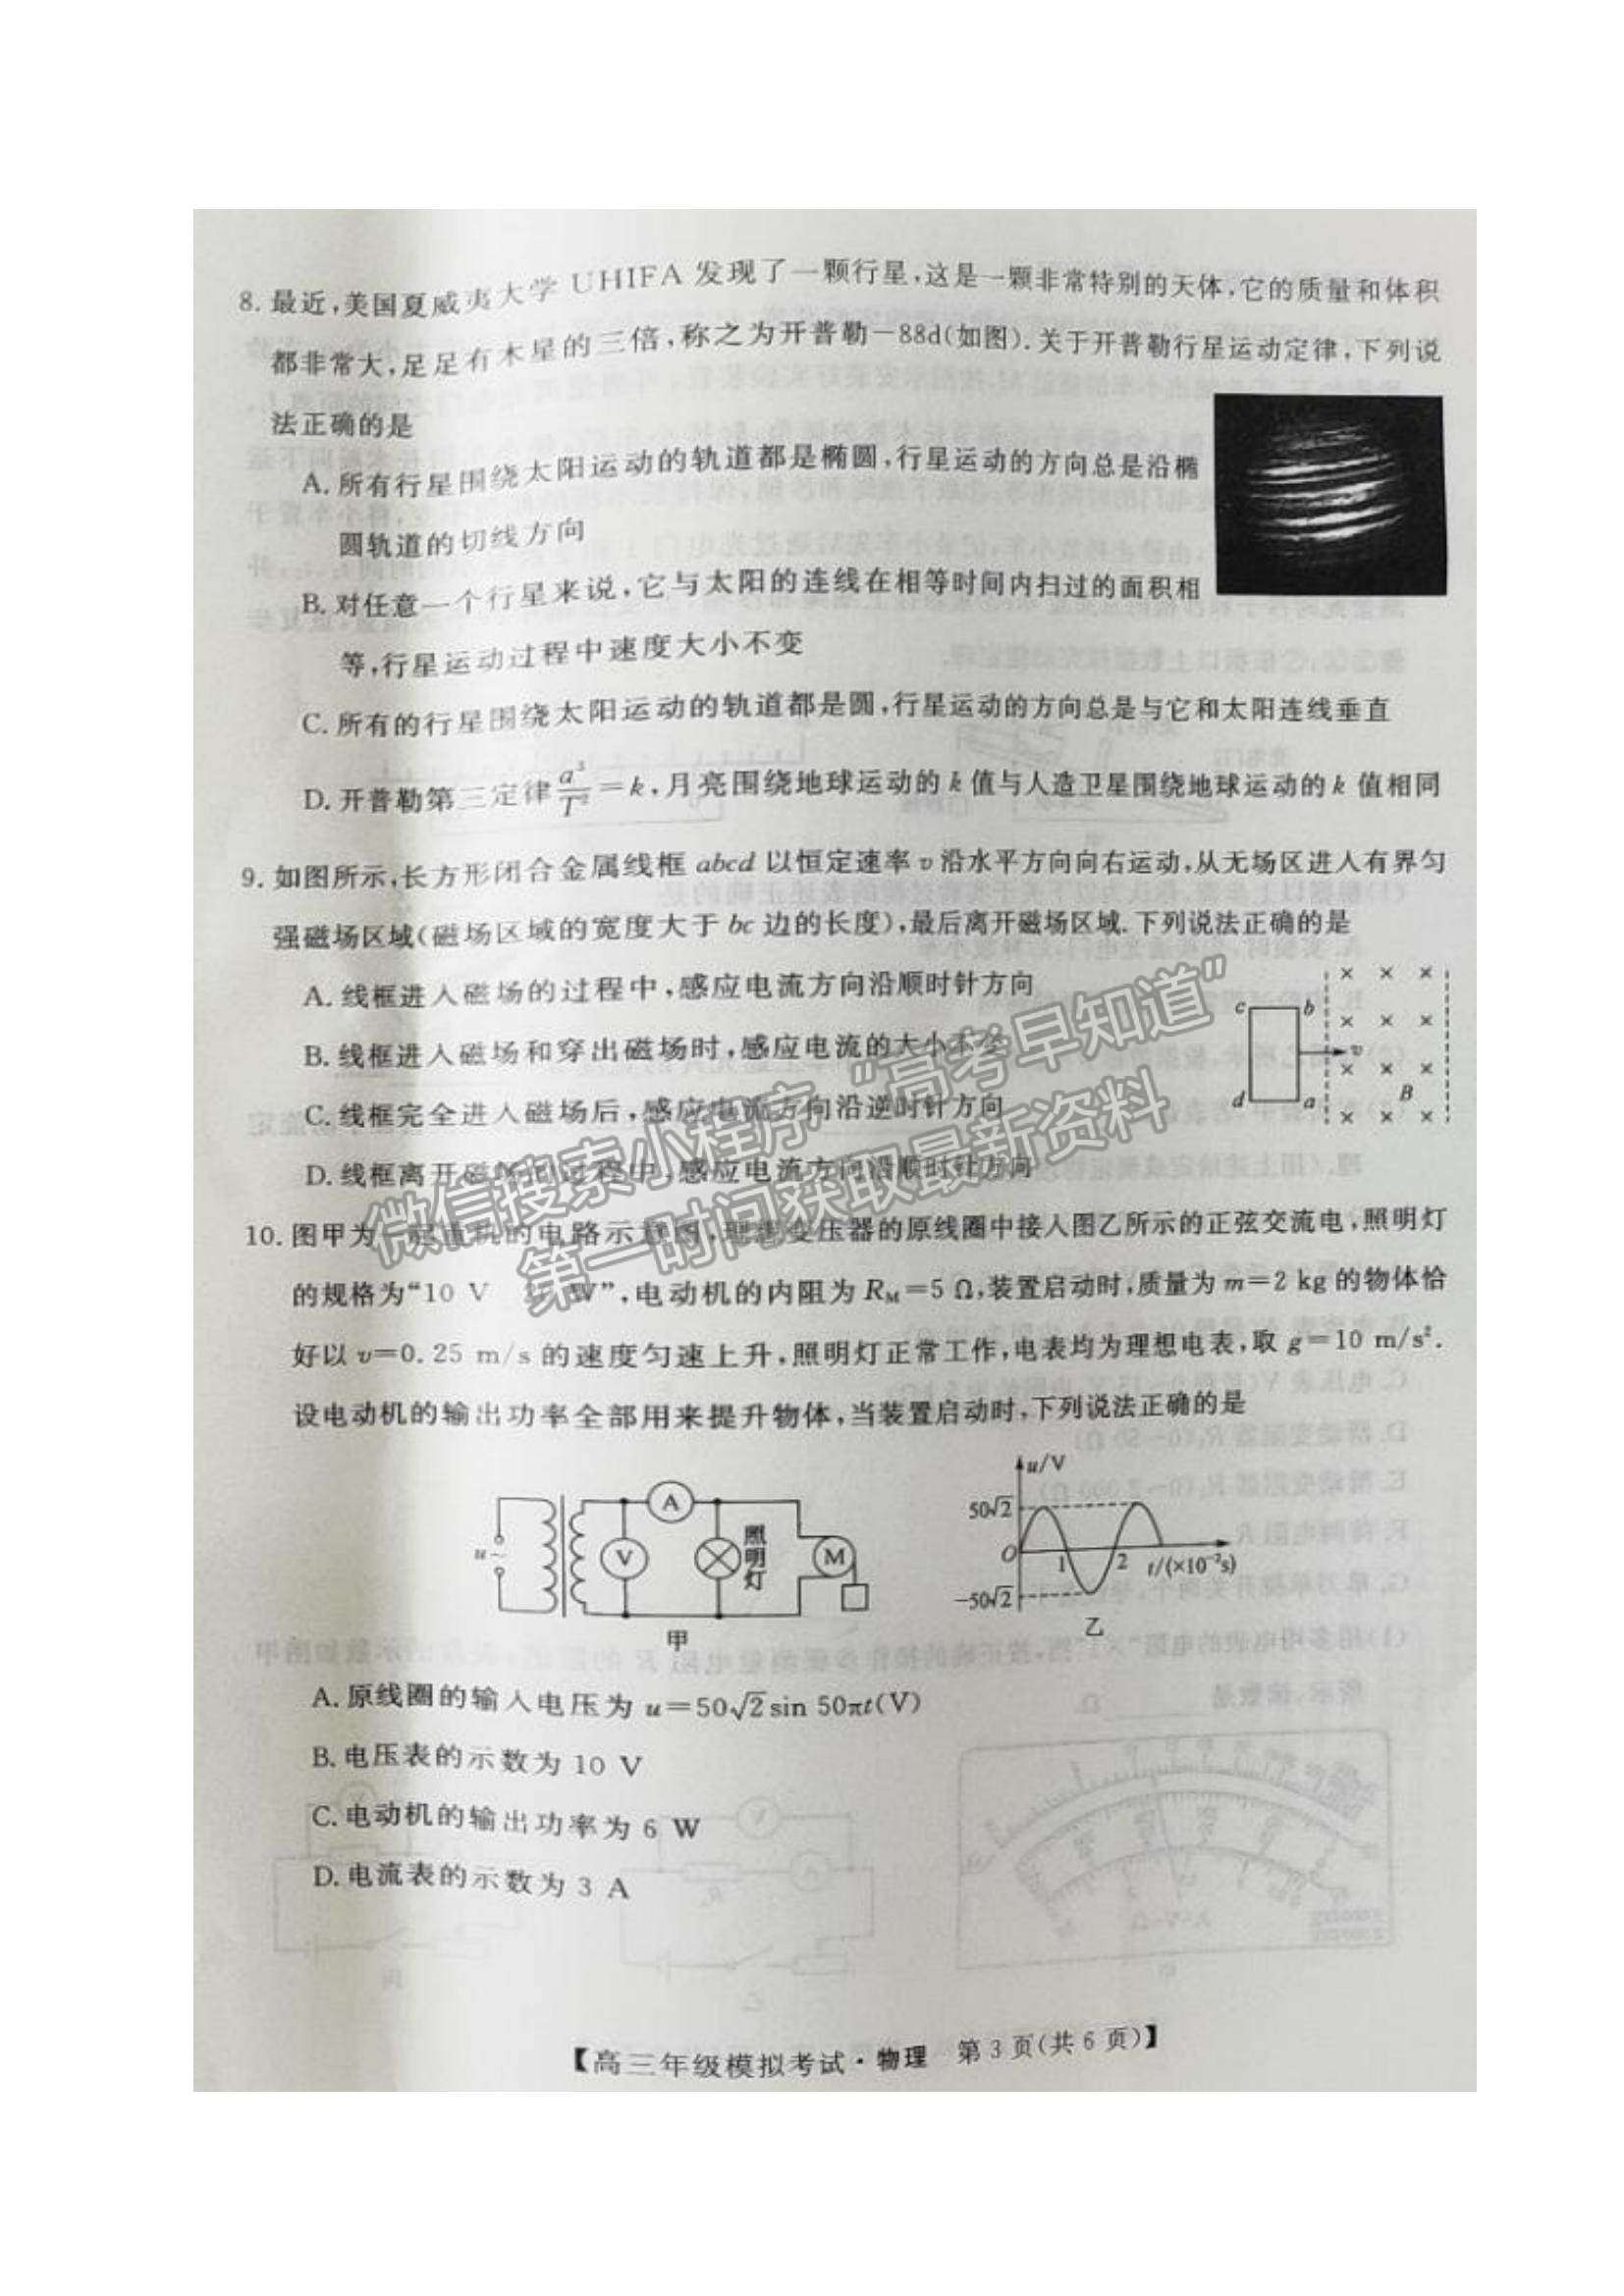 8. 最近,美国夏威夷大学 UHIFA 发现了一颗行星,这是一颗非常特别的天体,它的质量和体积
都非常大,足足有木星的三倍,称之为开普勒－88d(如图).关于开普勒行星运动定律,下列说
法正确的是
A. 所有行星围绕太阳运动的轨道都是椭圆,行星运动的方向总是沿椭
圆轨道的切线方向
B. 对任意一个行星来说,它与太阳的连线在相等时间内扫过的面积相
等,行星运动过程中速度大小不变
C. 所有的行星围绕太阳运动的轨道都是圆,行星运动的方向总是与它和太阳连线垂直
D. 开普勒第三定律 a³/T² ＝k,月亮围绕地球运动的 k 值与人造卫星围绕地球运动的 k 值相同
9. 如图所示,长方形闭合金属线框 abcd 以恒定速率 v 沿水平方向向右运动,从无场区进入有界匀
强磁场区域(磁场区域的宽度大于 bc 边的长度),最后离开磁场区域. 下列说法正确的是
A. 线框进入磁场的过程中,感应电流方向沿顺时针方向
B. 线框进入磁场和穿出磁场时,感应电流的大小不变
C. 线框完全进入磁场后,感应电流方向沿逆时针方向
D. 线框离开磁场的过程中,感应电流方向沿顺时针方向
c b v B d a
微信搜索小程序“高考早知道”
第一时间获取最新资料
10. 图甲为 的电路示意图,理想变压器的原线圈中接入图乙所示的正弦交流电,照明灯
的规格为“10 V W”,电动机的内阻为 R_M＝5 Ω,装置启动时,质量为 m＝2 kg 的物体恰
好以 v＝0.25 m/s 的速度匀速上升,照明灯正常工作,电表均为理想电表,取 g＝10 m/s².
设电动机的输出功率全部用来提升物体,当装置启动时,下列说法正确的是
u~ A V 照明灯 M
甲
u/V
50√2
O 1 2 t/(×10⁻²s)
−50√2
乙
A. 原线圈的输入电压为 u＝50√2sin 50πt(V)
B. 电压表的示数为 10 V
C. 电动机的输出功率为 6 W
D. 电流表的示数为 3 A
【高三年级模拟考试·物理 第 3 页(共 6 页)】